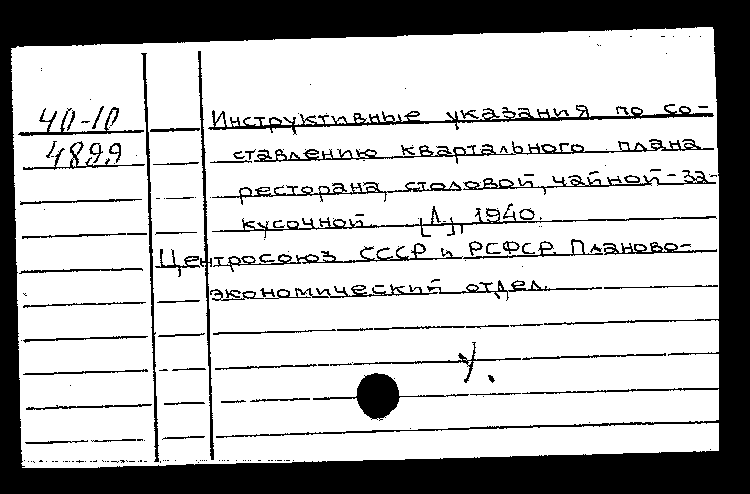 40-10
4899
Инструктивные указания по со-
ставлению квартального плана
ресторана, столовой, чайной-за-
кусочной. [Л], 1940.
Центросоюз СССР и РСФСР. Планово-
экономический отдел.
У.